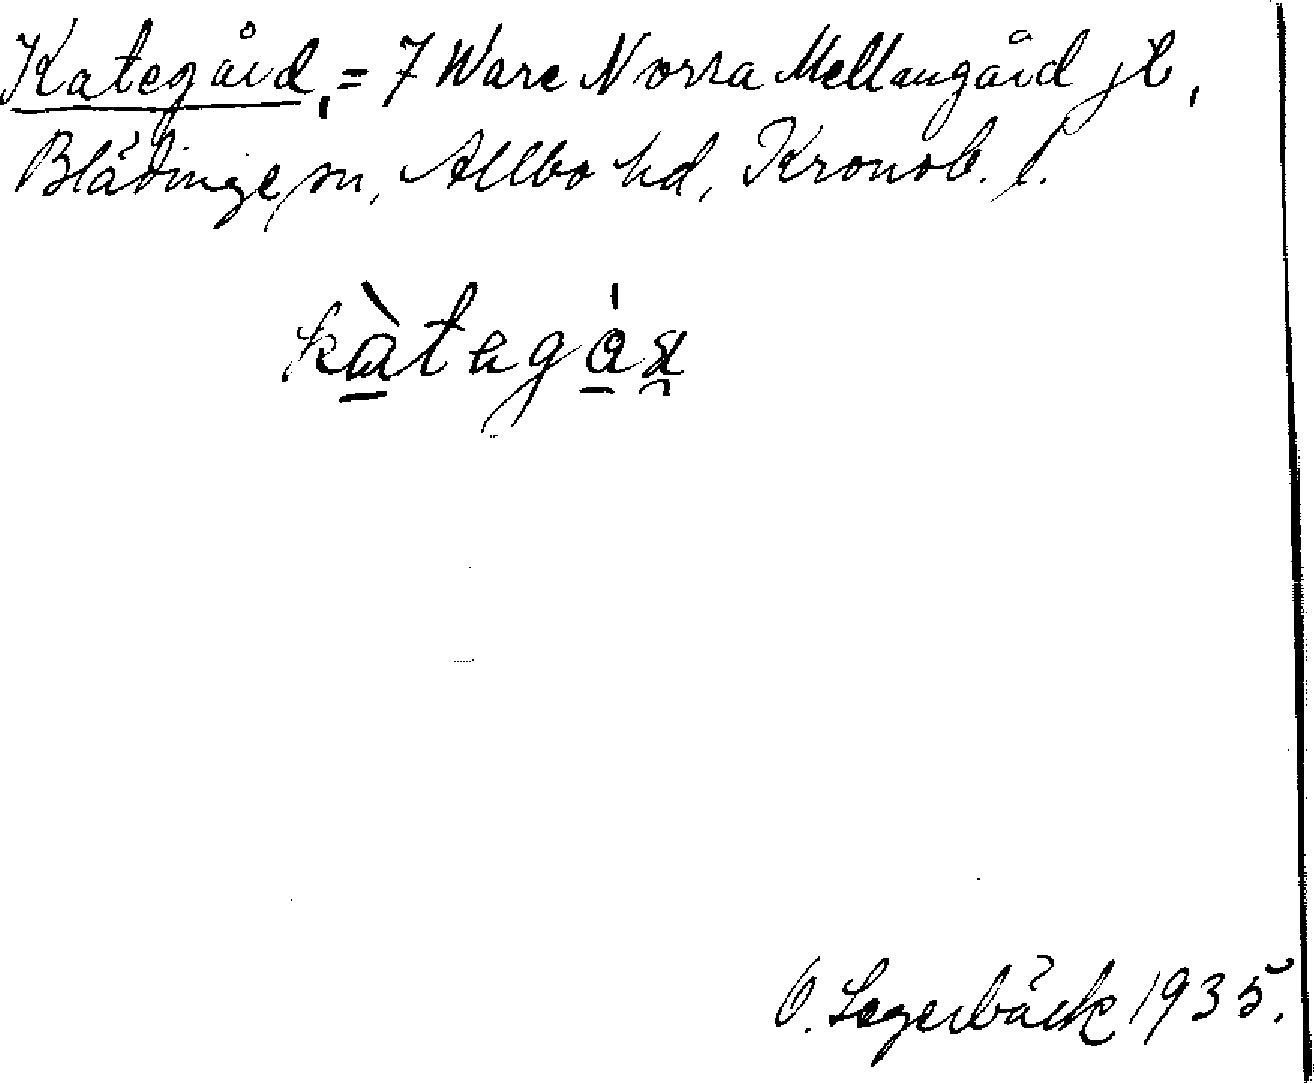 Kategård, = 7 Ware Norra Mellangård jb,
Blädinge sn, Allbo hd, Kronob. l.
O. Lagerbäck 1935.